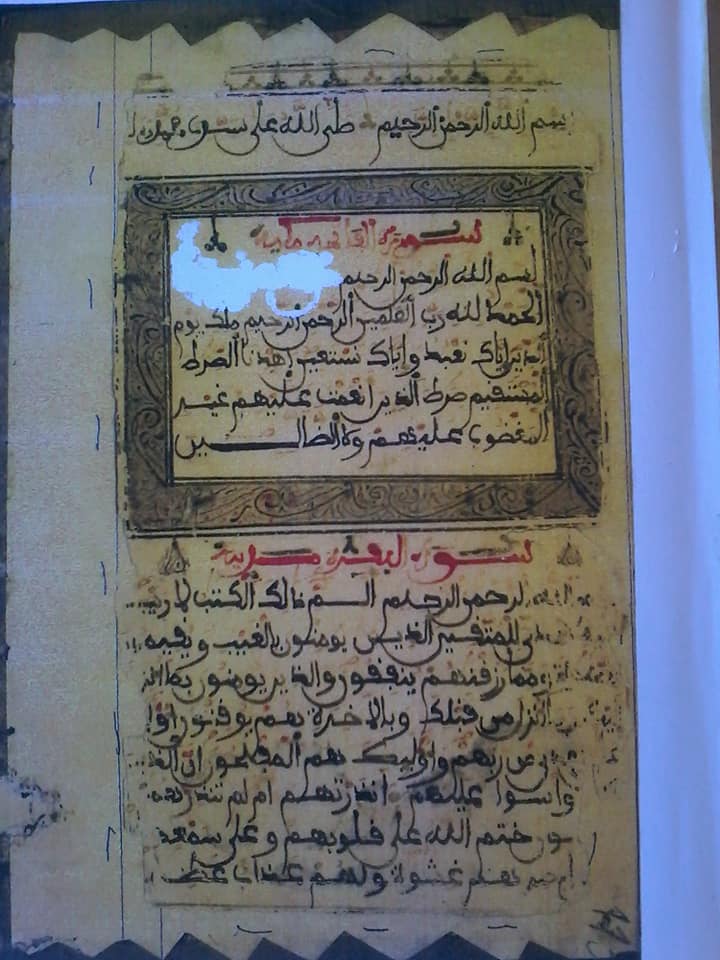 بسم الله الرحمن الرحيم صلى الله على سيدنا محمد
سورة الفاتحة مكية
بسم الله الرحمن الرحيم
الحمد لله رب العلمين الرحمن الرحيم ملك يوم
الدين اياك نعبد واياك نستعين اهدنا الصرط
المستقيم صرط الذين انعمت عليهم غير
المغضوب عليهم ولا الضالين
سورة البقرة مدنية
الله الرحمن الرحيم الم ذالك الكتب لا ريب
للمتقين الذين يومنون بالغيب ويقيمو
ومما رزقنهم ينفقون والذين يومنون بما
انزل من قبلك وبالاخرة هم يوقنون اول
من ربهم واوليك هم المفلحون ان الذ
وا سوا عليهم انذرتهم ام لم تنذرهم
ون ختم الله على قلوبهم وعلى سمعه
غشوة ولهم عذاب عظ